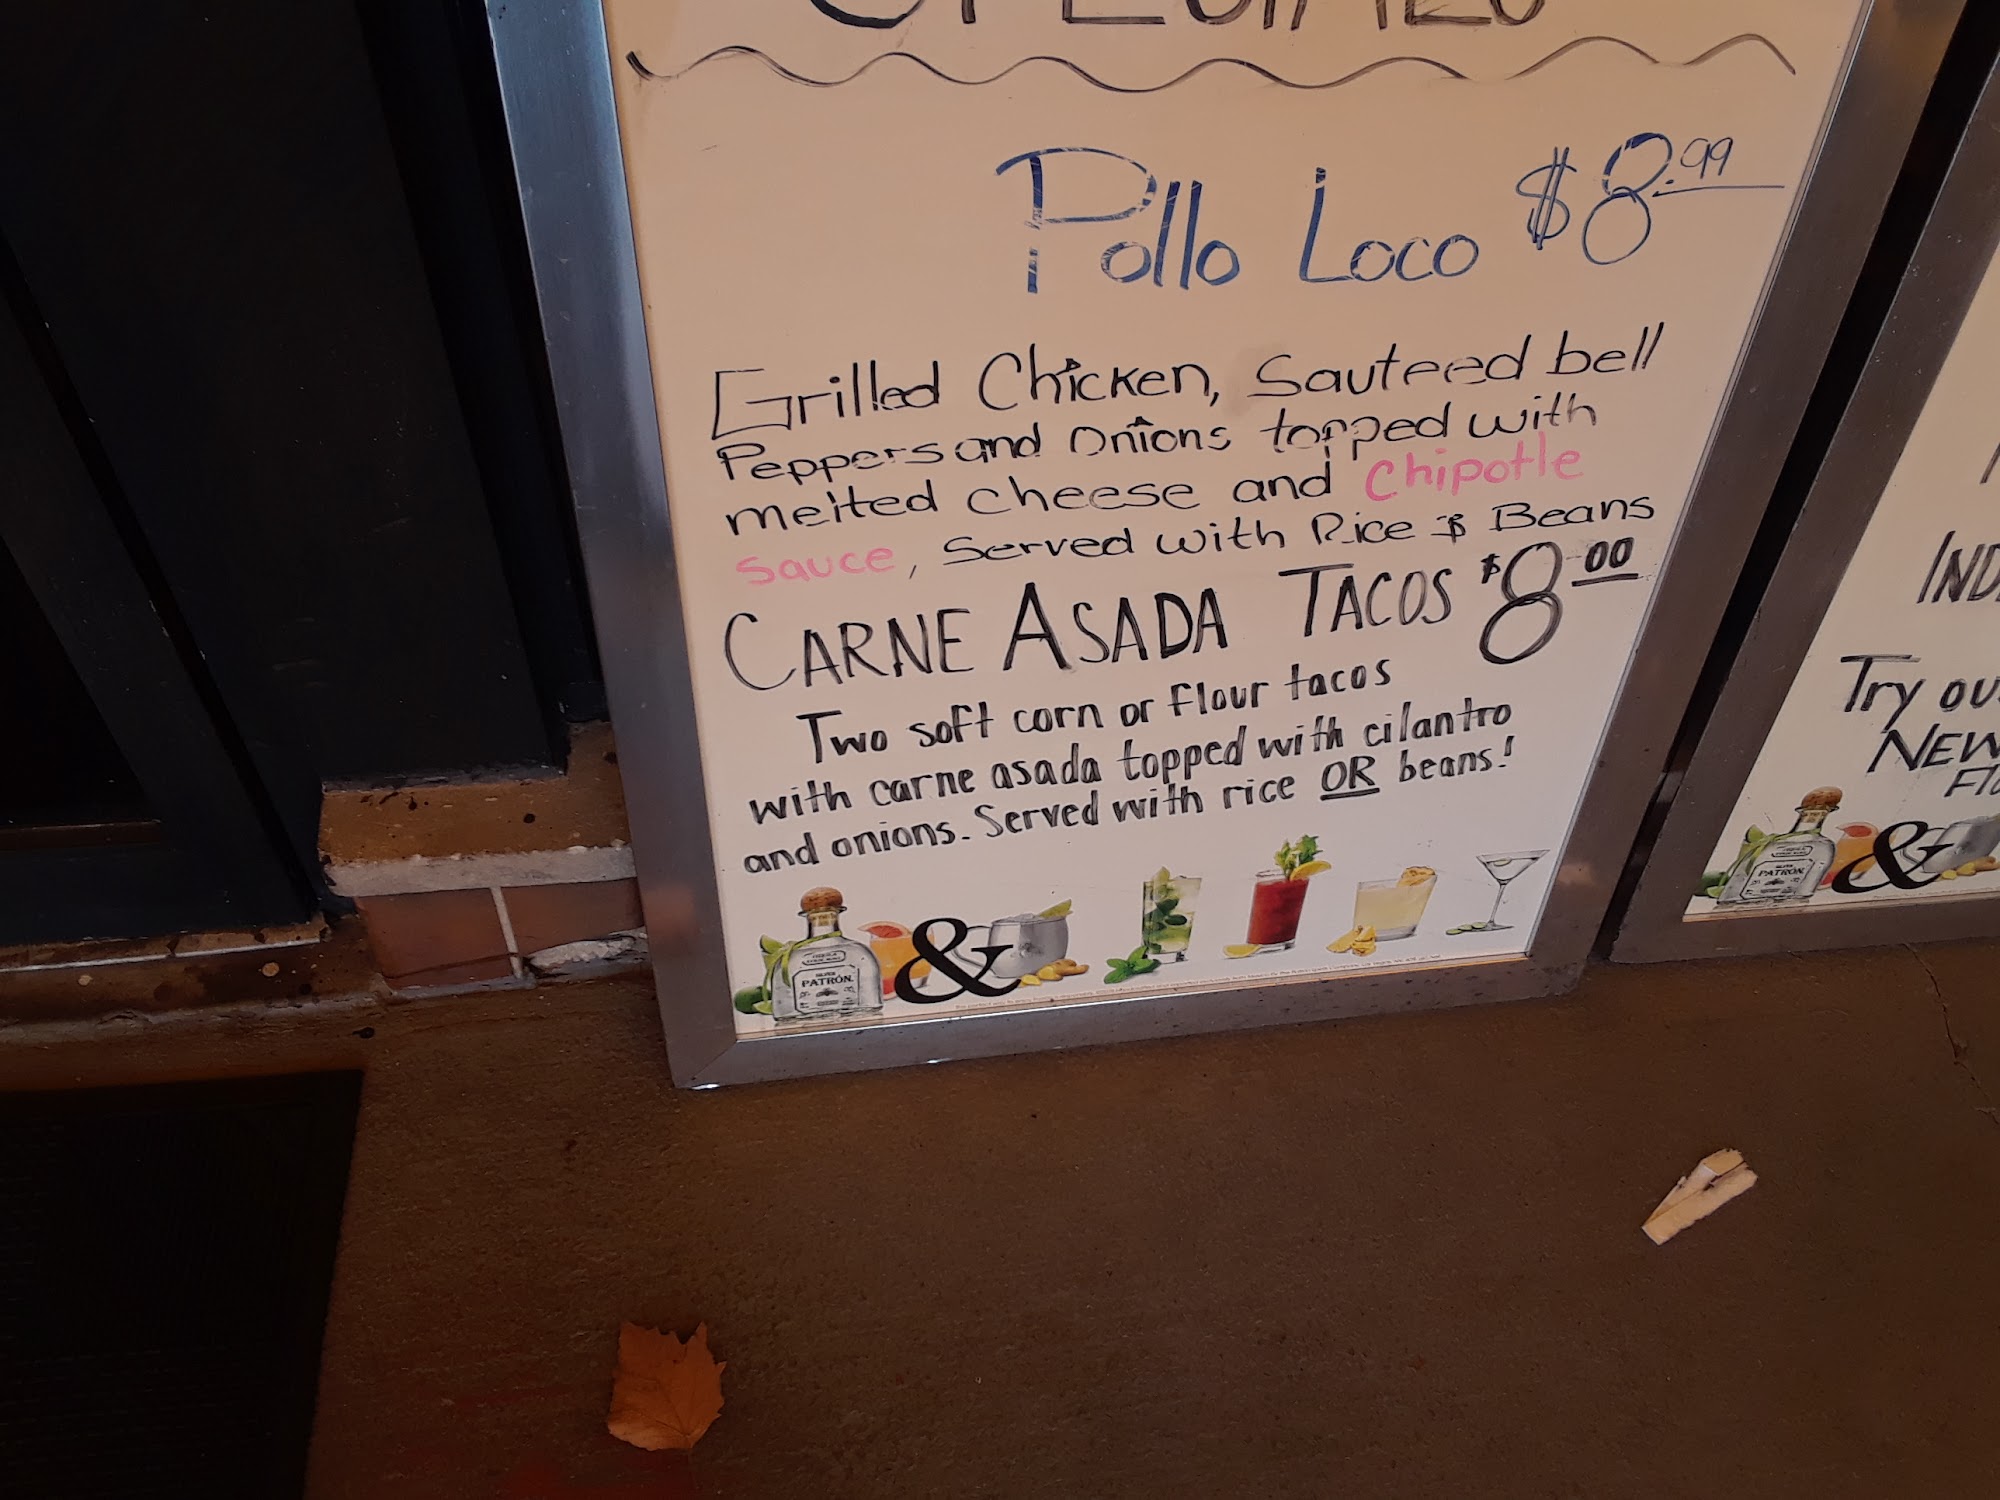 SPECIALS
Pollo Loco $8.99
Grilled Chicken, Sauteed bell
Peppers and Onions topped with
melted cheese and Chipotle
Sauce, Served with Rice $ Beans
CARNE ASADA TACOS $8.00
Two soft corn or flour tacos
with carne asada topped with cilantro
and onions. Served with rice OR beans!
PATRÓN
&
IND
Try ou
NEW
Flo
PATRÓN
&